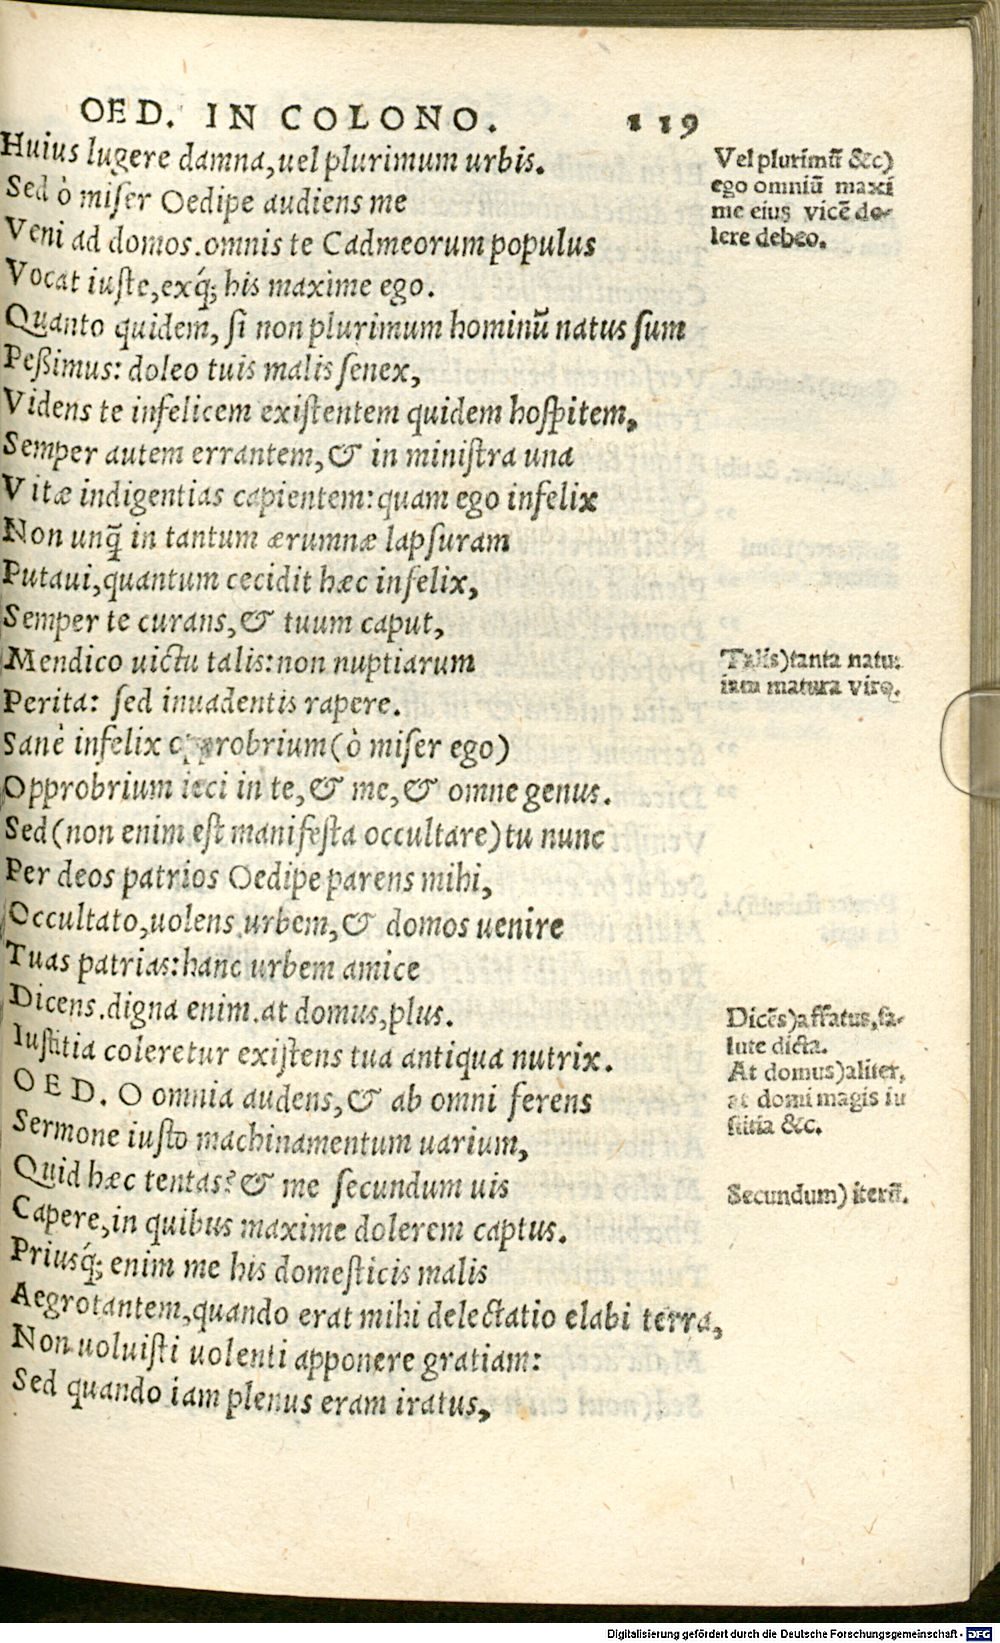 OED. IN COLONO. 119
Huius lugere damna,uel plurimum urbis.
Sed ò miser Oedipe audiens me
Veni ad domos.omnis te Cadmeorum populus
Vocat iuste,exq́; his maxime ego.
Quanto quidem, si non plurimum hominũ natus sum
Peßimus: doleo tuis malis senex,
Videns te infelicem existentem quidem hospitem,
Semper autem errantem,& in ministra una
Vitæ indigentias capientem:quam ego infelix
Non unq̃ in tantum ærumnæ lapsuram
Putaui,quantum cecidit hæc infelix,
Semper te curans,& tuum caput,
Mendico uictu talis:non nuptiarum
Perita: sed inuadentis rapere.
Sanè infelix opprobrium(ò miser ego)
Opprobrium ieci in te,& me,& omne genus.
Sed(non enim est manifesta occultare)tu nunc
Per deos patrios Oedipe parens mihi,
Occultato,uolens urbem,& domos uenire
Tuas patrias:hanc urbem amice
Dicens.digna enim.at domus,plus.
Iustitia coleretur existens tua antiqua nutrix.
OED. O omnia audens,& ab omni ferens
Sermone iusto machinamentum uarium,
Quid hæc tentas? & me secundum uis
Capere,in quibus maxime dolerem captus.
Priusq́; enim me his domesticis malis
Aegrotantem,quando erat mihi delectatio elabi terra,
Non uoluisti uolenti apponere gratiam:
Sed quando iam plenus eram iratus,
Vel plurimũ &c)
ego omniũ maxi
me eius vicẽ do-
lere debeo.
Talis)tanta natu:
iam matura viro.
Dicẽs)affatus,sa-
lute dicta.
At domus)aliter,
at domi magis iu
stitia &c.
Secundum) iterũ.
Digitalisierung gefördert durch die Deutsche Forschungsgemeinschaft - DFG